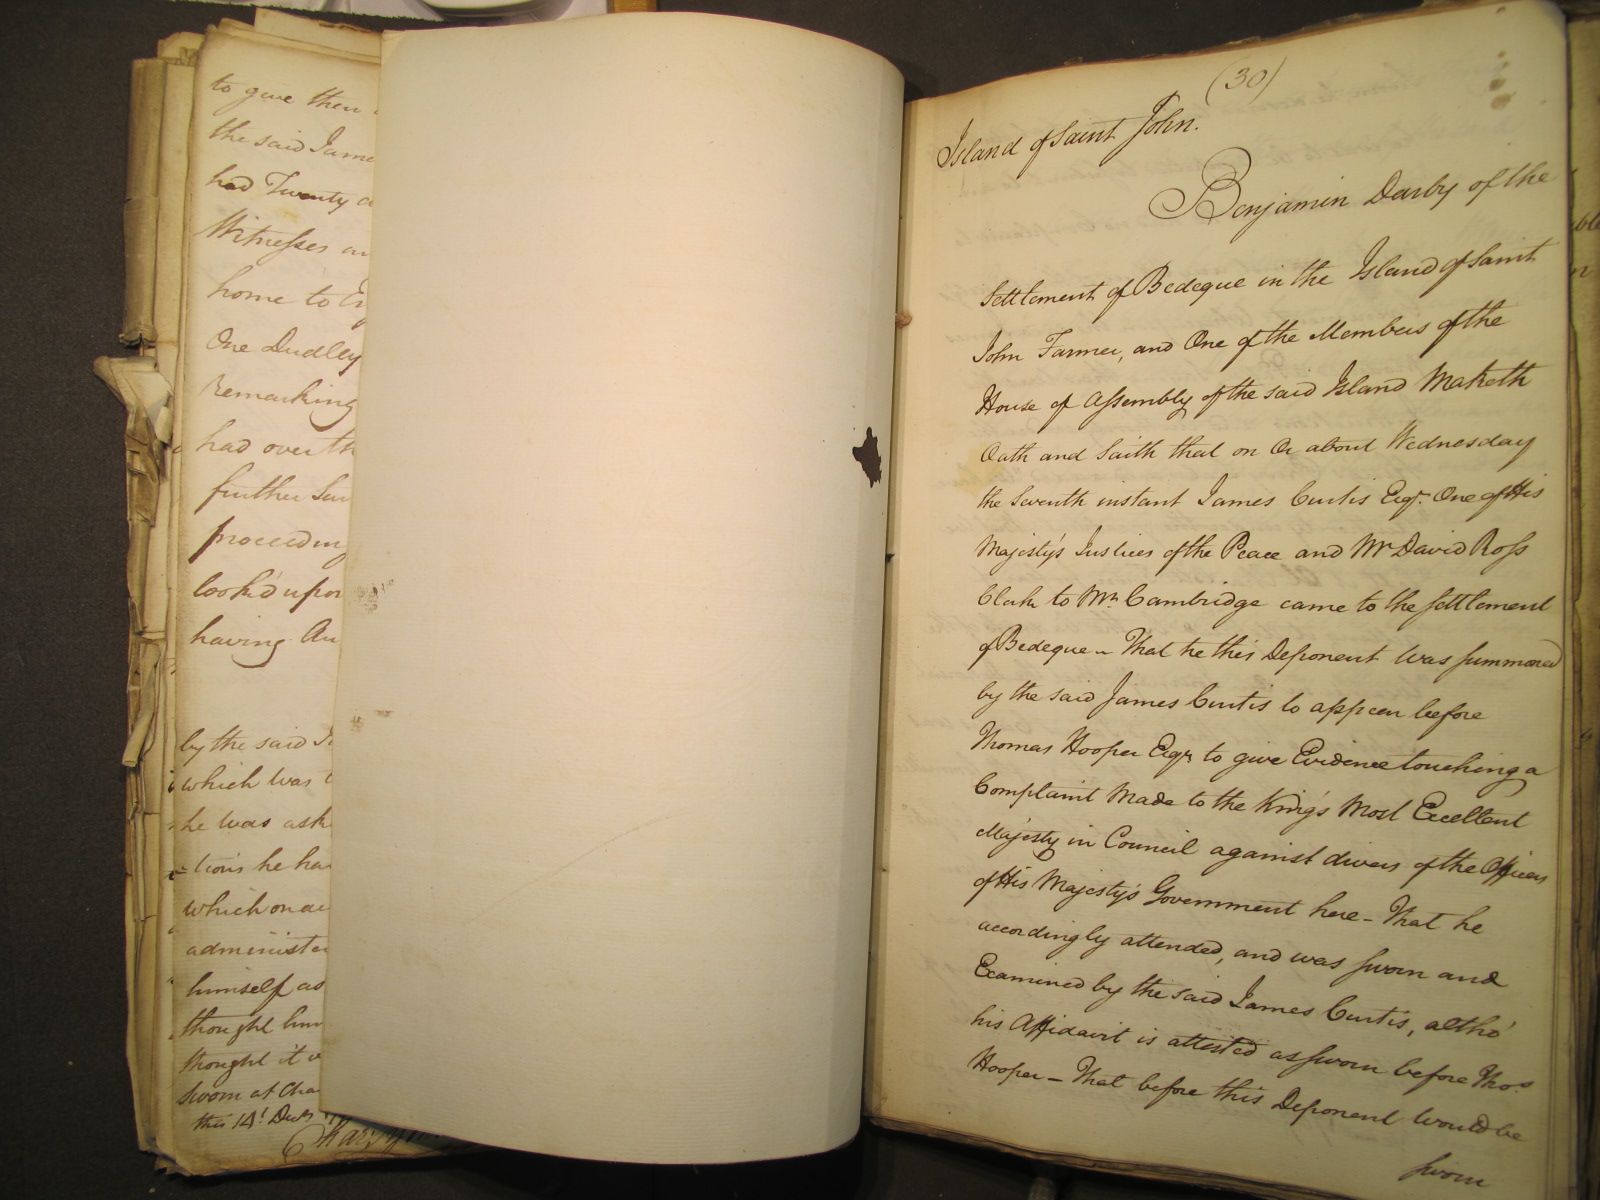 to give them
the said Jame
had Twenty a
Witnesses an
home to
One Dudley
remarking
had over th
further
proceedin
look'd upon
having An
by the said J
which was
he was ask
tions he ha
which on
administe
himself as
thought him
thought it
Sworn at Cha
this 14t. Decr
(30)
Island of Saint John.
Benjamin Darby of the
Settlement of Bedeque in the Island of Saint
John Farmer, and One of the Members of the
House of Assembly of the said Island Maketh
Oath and Saith that on Or about Wednesday
the Seventh instant James Curtis Esqr. One of His
Majesty's Justices of the Peace and Mr David Ross
Clerk to Mr. Cambridge came to the settlement
of Bedeque – That he this Deponent was summoned
by the said James Curtis to appear before
Thomas Hooper Esqr. to give Evidence touching a
Complaint Made to the King's Most Excellent
Majesty in Council against divers of the Officers
of His Majesty's Government here – That he
accordingly attended, and was sworn and
Examined by the said James Curtis, altho'
his Affidavit is attested as sworn before Thos.
Hooper – That before this Deponent would be
sworn